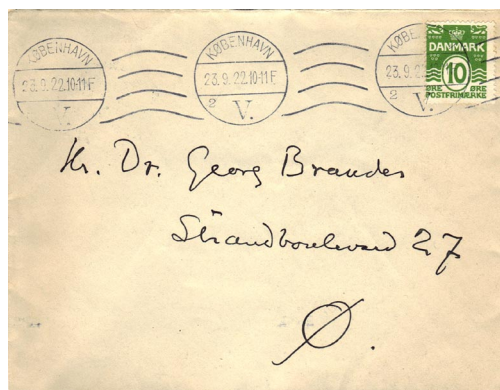 KØBENHAVN
23.9.22.10-11 F
V.
KØBENHAVN
23.9.22.10-11 F
2
V.
KØBE
23.9.22
2
V.
DANMARK
10
ØRE ØRE
POSTFRIMÆRKE
Hr. Dr. Georg Brandes
Strandboulevard 27
Ø.